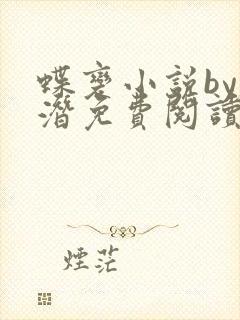 蝶甍小説by
潛免費閱讀
煙茫